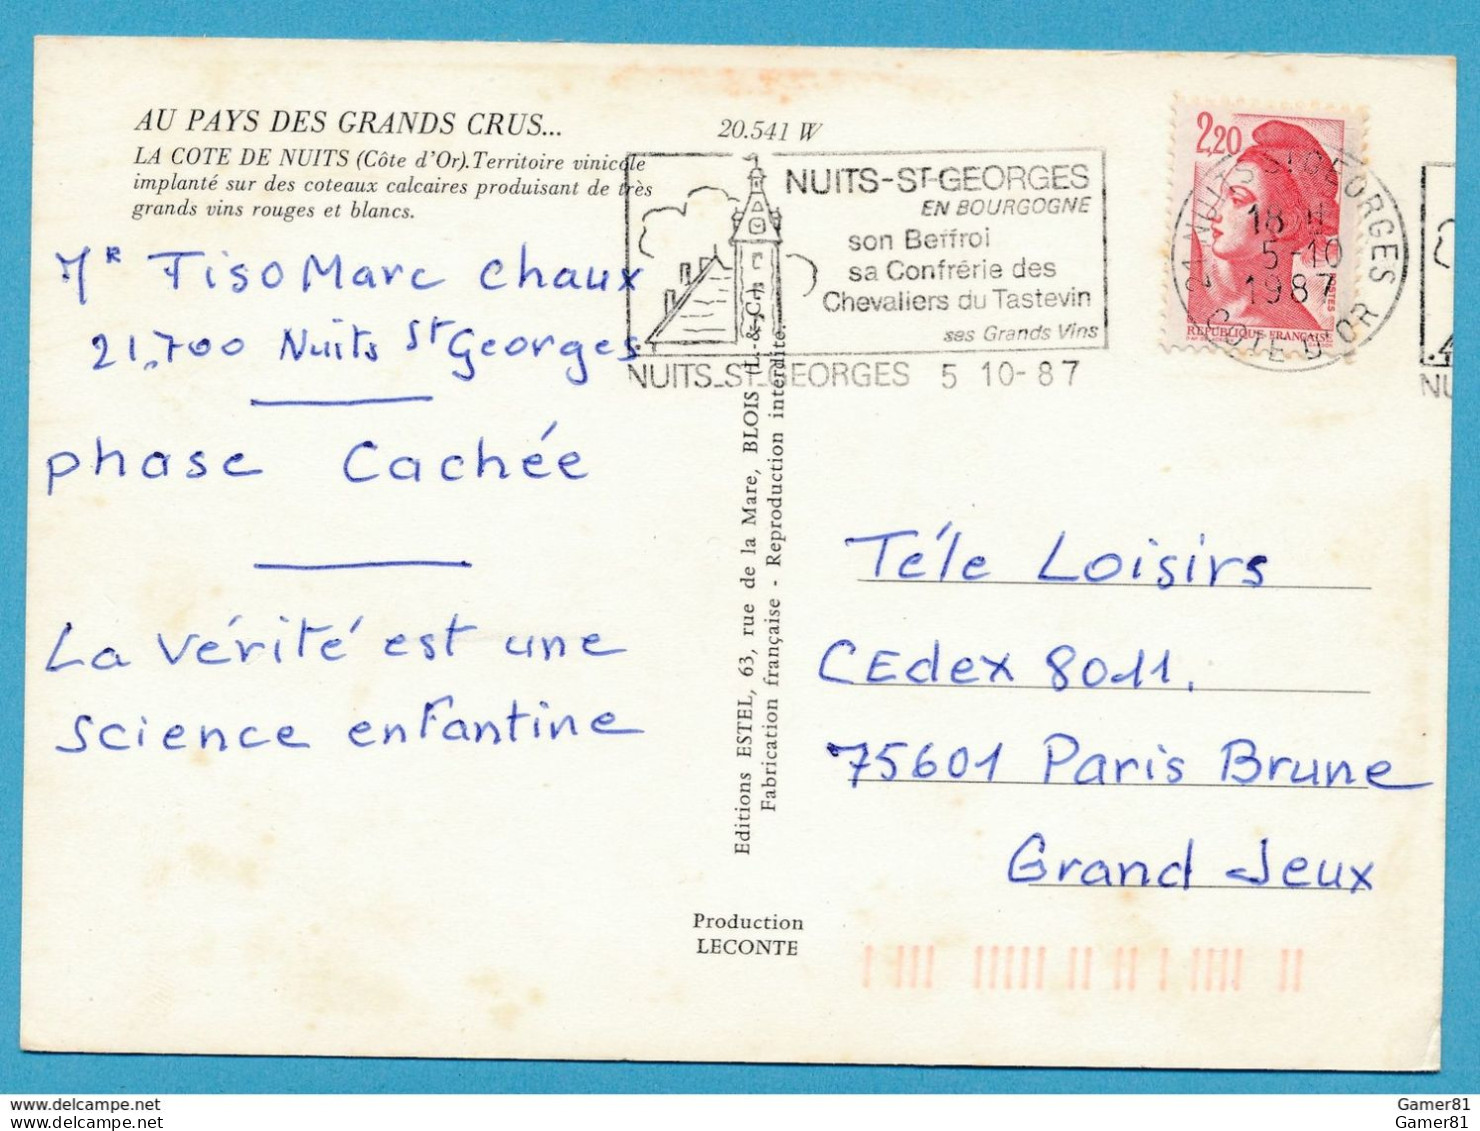 AU PAYS DES GRANDS CRUS...
LA COTE DE NUITS (Côte d'Or). Territoire vinicole
implanté sur des coteaux calcaires produisant de très
grands vins rouges et blancs.
20.541 W
NUITS-ST-GEORGES
EN BOURGOGNE
son Beffroi
sa Confrérie des
Chevaliers du Tastevin
ses Grands Vins
NUITS-ST-GEORGES 5 10-87
2,20
RÉPUBLIQUE FRANÇAISE
POSTES
21 NUITS ST GEORGES
18 H
5-10
1987
COTE D'OR
NU
Mr Tiso Marc Chaux
21.700 Nuits St Georges
phase Cachée
La vérité est une
science enfantine
Editions ESTEL, 63, rue de la Mare, BLOIS (L.-&-C.)
Fabrication française - Reproduction interdite.
Production
LECONTE
Téle Loisirs
CEdex 8011.
75601 Paris Brune
Grand Jeux
www.delcampe.net
www.delcampe.net
Gamer81
Gamer81